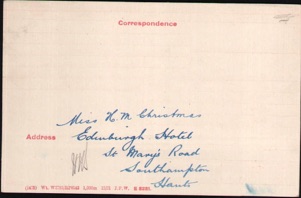 Correspondence
Miss H. M. Christmas
Address Edinburgh Hotel
St Mary's Road
Southampton
Hants